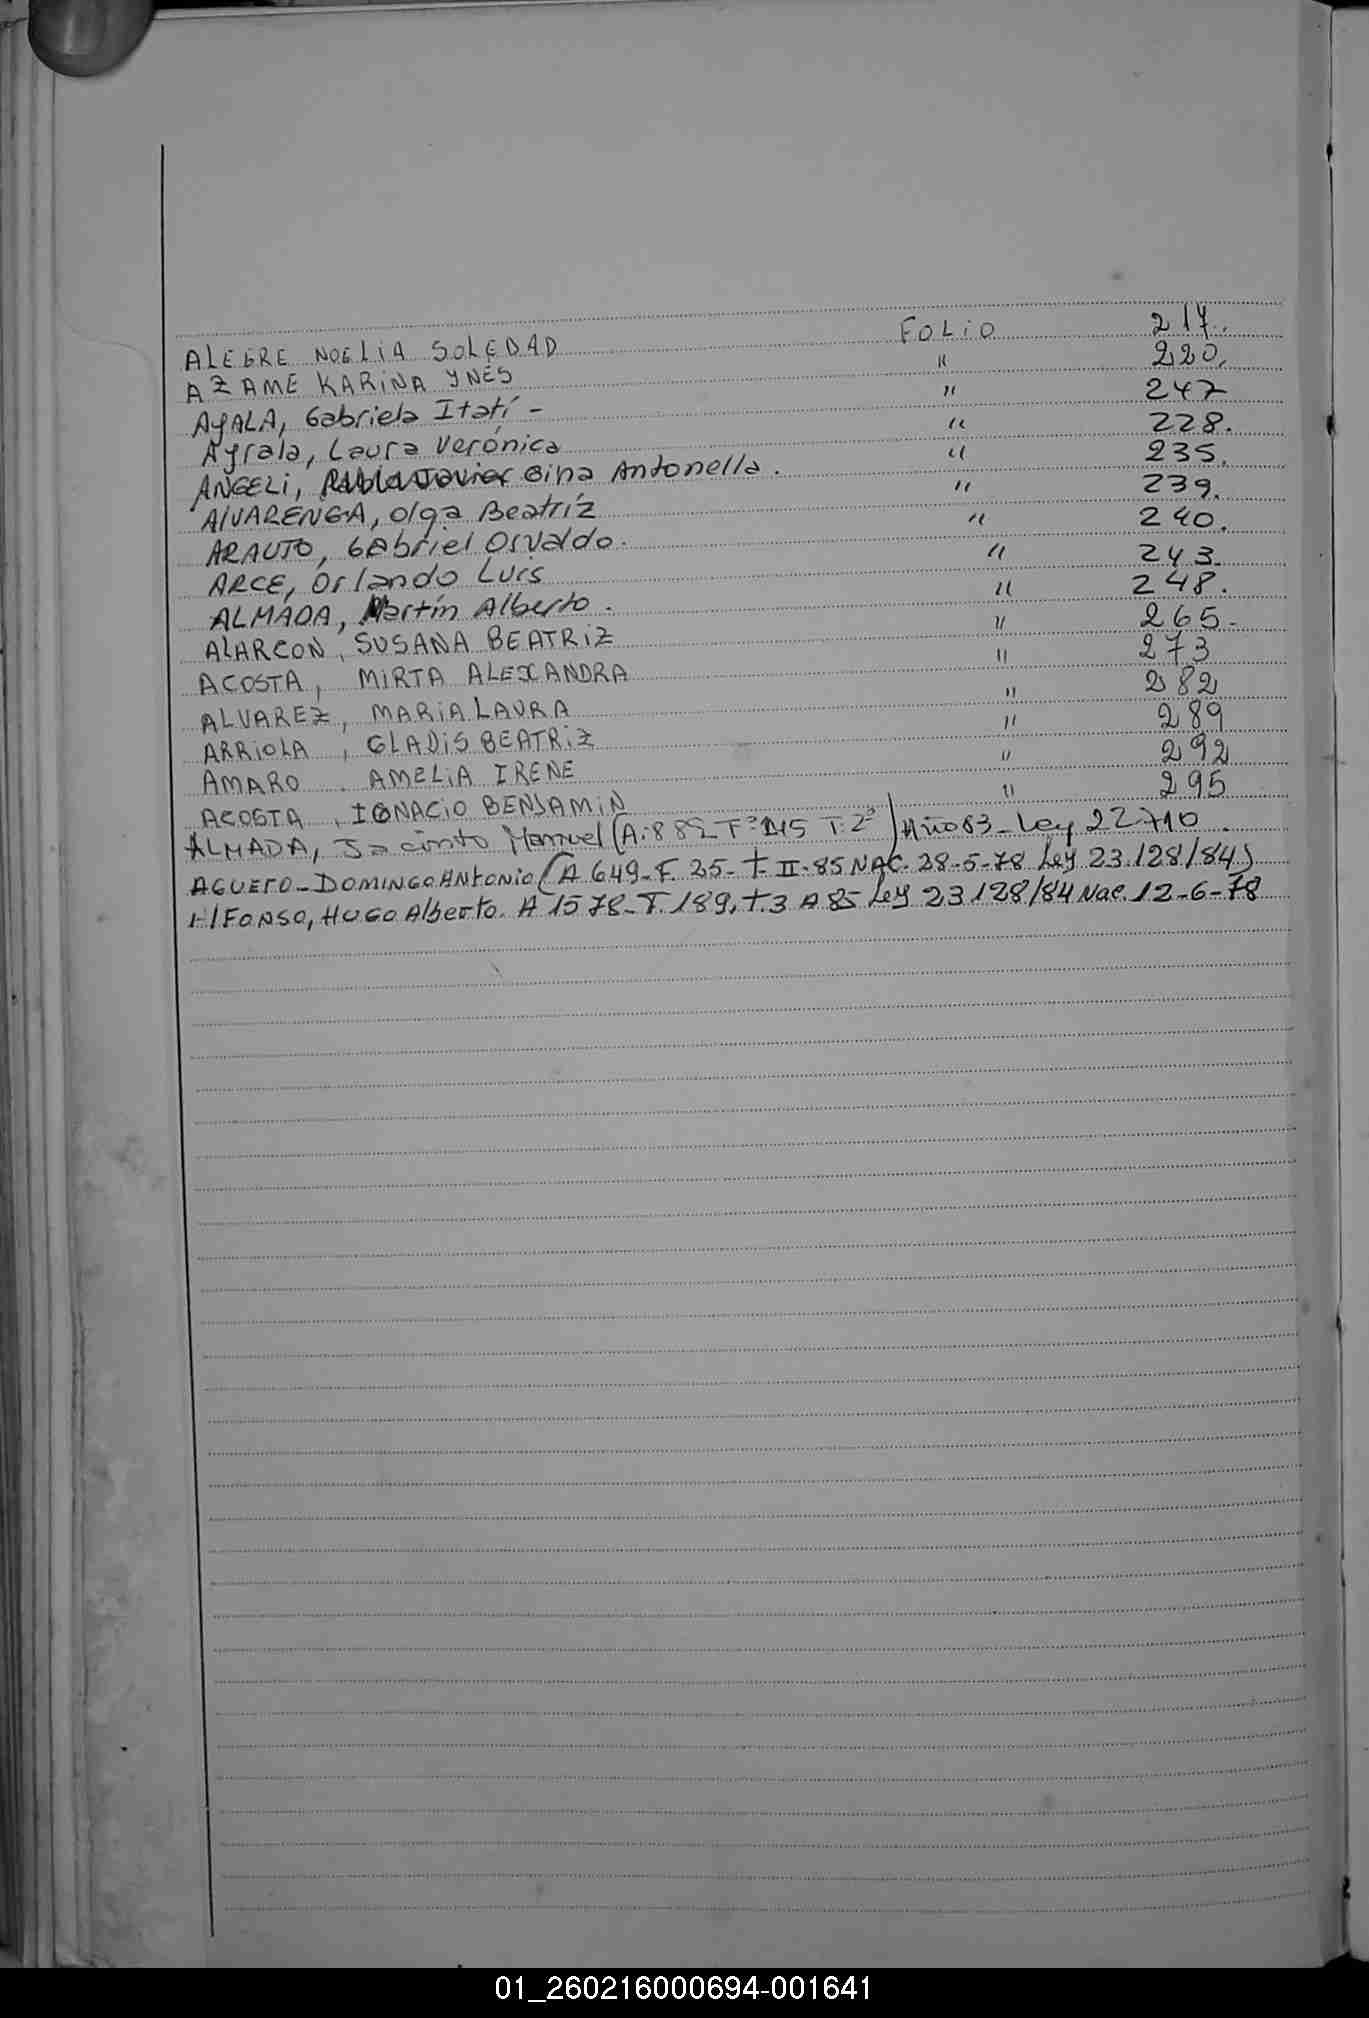 ALEGRE NOELIA SOLEDAD FOLIO 217.
AZAME KARINA YNÉS " 220.
AYALA, Gabriela Itatí - " 247
Ayrala, Laura Verónica " 228.
ANGELI, Gina Antonella. " 235.
AlVARENGA, Olga Beatríz " 239.
ARAUJO, GAbriel Osvaldo. " 240.
ARCE, Orlando Luis " 243.
ALMADA, Martín Alberto. " 248.
ALARCON, SUSANA BEATRIZ " 265.
ACOSTA, MIRTA ALEXANDRA " 273
ALVAREZ, MARIA LAURA " 282
ARRIOLA, GLADIS BEATRIZ " 289
AMARO. AMELIA IRENE " 292
ACOSTA, IGNACIO BENJAMIN " 295
ALMADA, Jacinto Manuel (A. 882 Fº 145 T. 2º) Año 83 - Ley 22710.
AGUERO - DOMINGO ANtonio (A 649 - F. 25 - t. II - 85 NAC. 28-5-78 Ley 23.128/84)
AlFONSO, HUGO Alberto. A 1578 - F. 189, t. 3 A 85 Ley 23128/84 Nac. 12-6-78
01_260216000694-001641